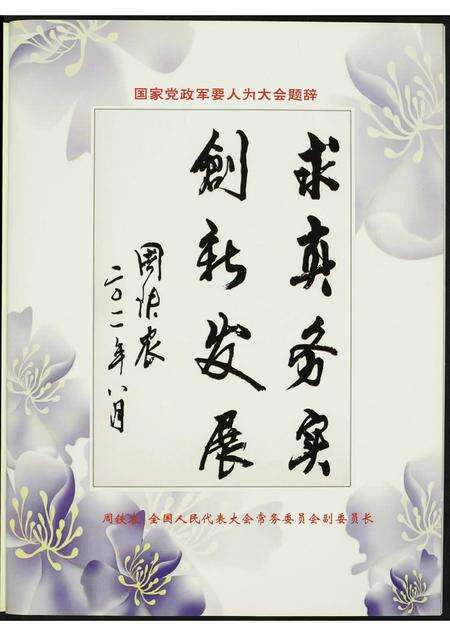 国家党政军要人为大会题辞
求真务实
創新发展
周铁农
二〇一一年八月
周铁农 全国人民代表大会常务委员会副委员长